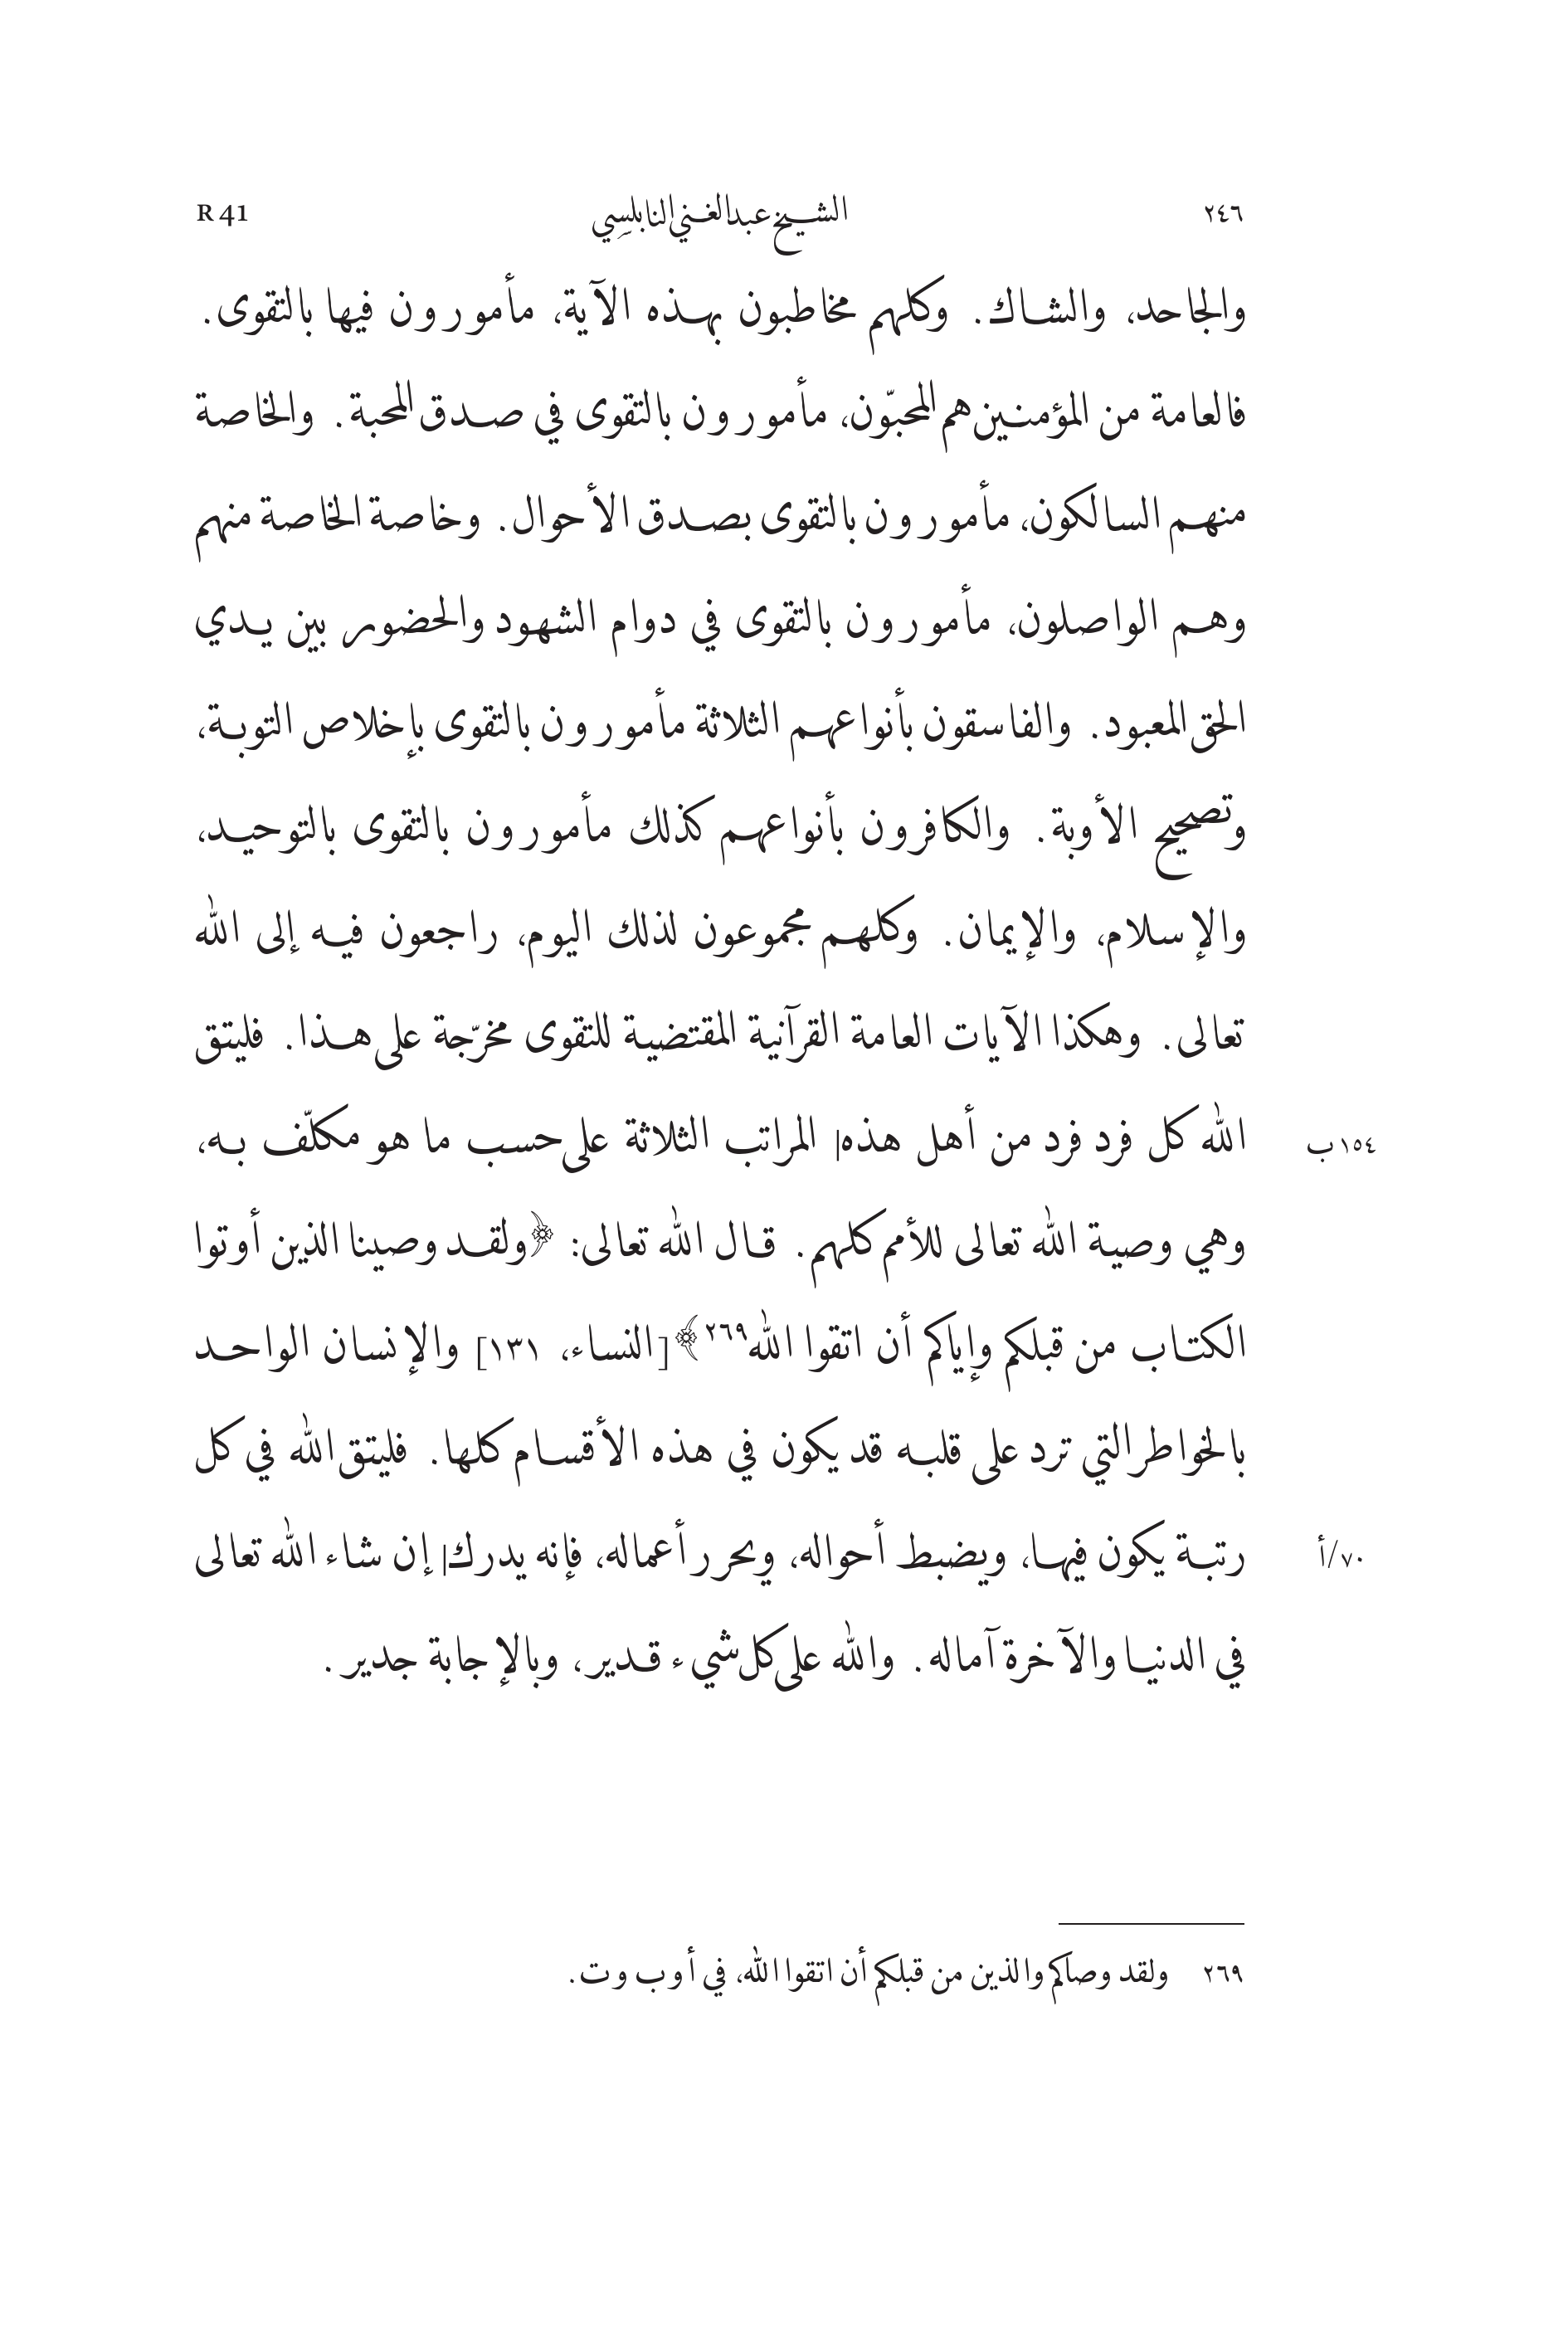 ٢٤٦ الشيخ عبد الغني النابلسي R 41
والجاحد، والشاك. وكلهم مخاطبون بهذه الآية، مأمورون فيها بالتقوى.
فالعامة من المؤمنين هم المحبّون، مأمورون بالتقوى في صدق المحبة. والخاصة
منهم السالكون، مأمورون بالتقوى بصدق الأحوال. وخاصة الخاصة منهم
وهم الواصلون، مأمورون بالتقوى في دوام الشهود والحضور بين يدي
الحق المعبود. والفاسقون بأنواعهم الثلاثة مأمورون بالتقوى بإخلاص التوبة،
وتصحيح الأوبة. والكافرون بأنواعهم كذلك مأمورون بالتقوى بالتوحيد،
والإسلام، والإيمان. وكلهم مجموعون لذلك اليوم، راجعون فيه إلى الله
تعالى. وهكذا الآيات العامة القرآنية المقتضية للتقوى مخرّجة على هذا. فليتق
١٥٤ب الله كل فرد فرد من أهل هذه| المراتب الثلاثة على حسب ما هو مكلّف به،
وهي وصية الله تعالى للأمم كلهم. قال الله تعالى: ﴿ولقد وصينا الذين أوتوا
الكتاب من قبلكم وإياكم أن اتقوا الله٢٦٩﴾ [النساء، ١٣١] والإنسان الواحد
بالخواطر التي ترد على قلبه قد يكون في هذه الأقسام كلها. فليتق الله في كل
٧٠/أ رتبة يكون فيها، ويضبط أحواله، ويحرر أعماله، فإنه يدرك| إن شاء الله تعالى
في الدنيا والآخرة آماله. والله على كل شيء قدير، وبالإجابة جدير.
٢٦٩ ولقد وصاكم والذين من قبلكم أن اتقوا الله، في أ و ب و ت.